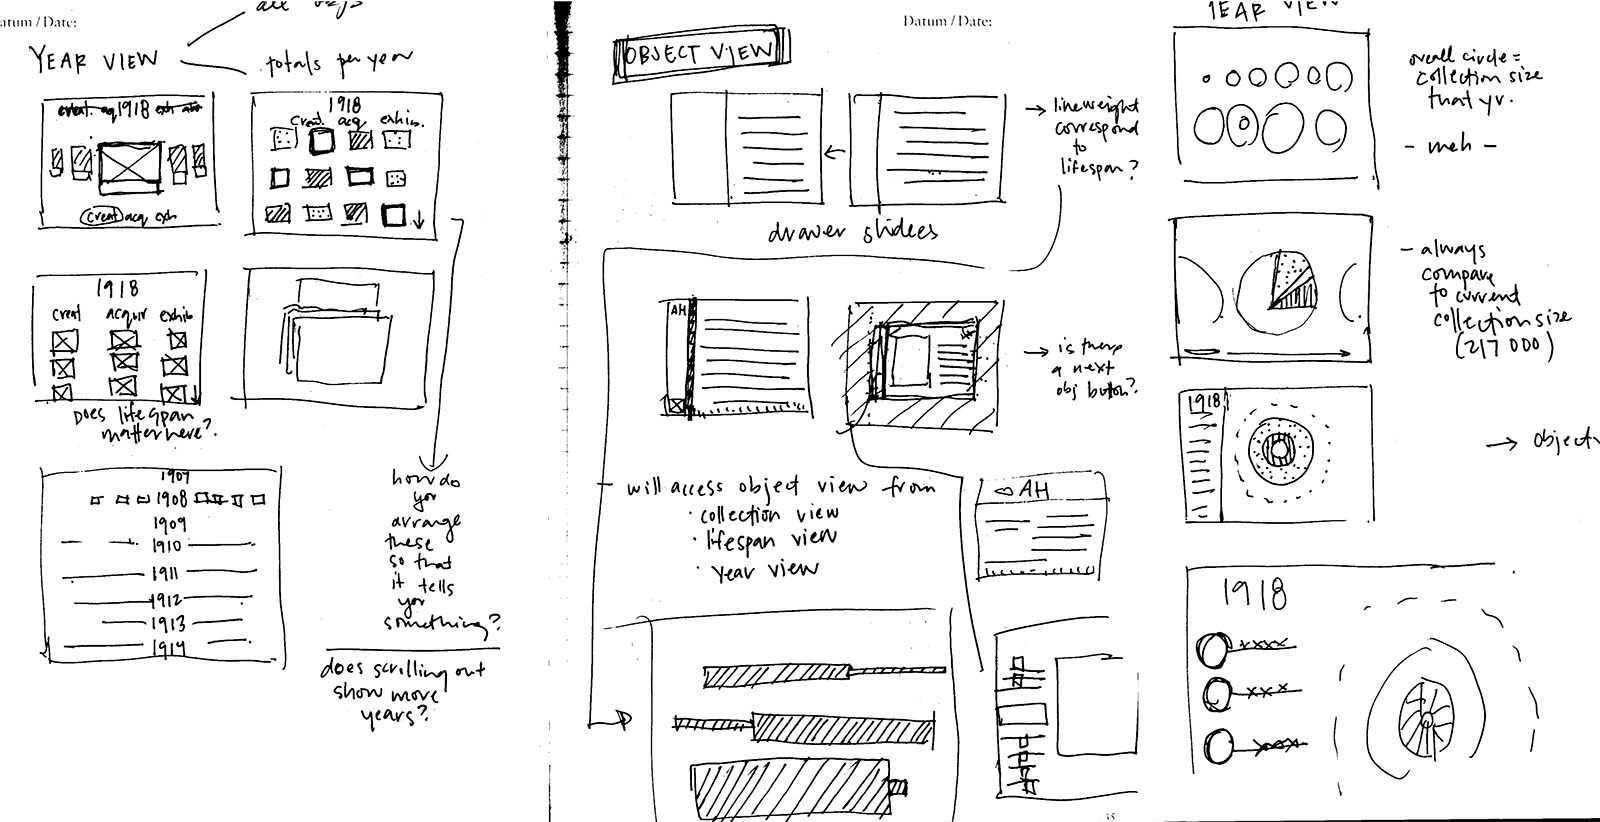 atum / Date:
YEAR VIEW
totals per year
creat. aq 1918 exh
creat acq exh
1918
Creat. acq exhib.
1918
creat acquir exhib
Does lifespan
matter here?
1907
1908
1909
1910
1911
1912
1913
1914
how do
you
arrange
these
so that
it tells
you
something?
does scrolling out
show more
years?
Datum / Date:
OBJECT VIEW
→ lineweight
correspond
to
lifespan?
drawer slidees
AH
→ is there
a next
obj button?
will access object view from
· collection view
· lifespan view
· year view
AH
35
YEAR VIEW
overall circle =
collection size
that yr.
- meh -
- always
compare
to current
collection size
(217 000)
1918
→ object
1918
xxxx
xxx
xxxx